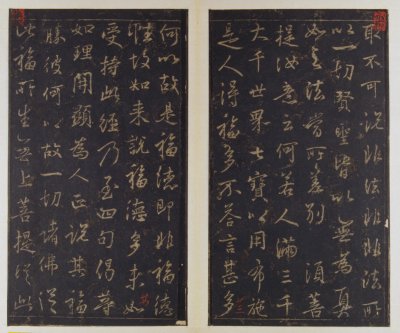 取不可説非法非非法所
以一切賢聖皆以無為真
如無法皆所差別須菩
提汝意云何若人滿三千
大千世界七寶以用布施
是人得福多不答言甚多
何以故是福德即非福德
性故如来説福德多
受持此經乃至四句偈等
如理開顯為人正説其福
勝彼何以故一切諸佛從
此福所生無上菩提從此